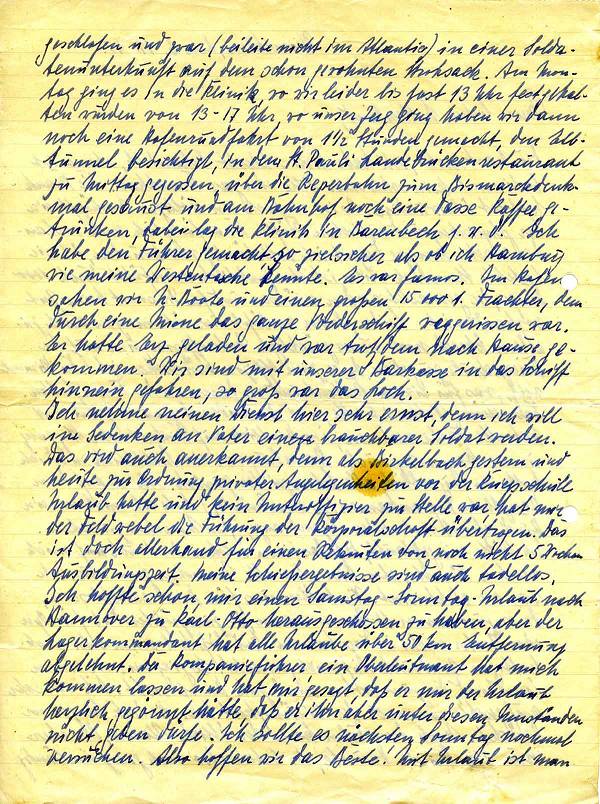 geschlafen und zwar (beileibe nicht im Atlantic) in einer Solda-
tenunterkunft auf dem schon gewohnten Strohsack. Am Mon-
tag ging es in die Klinik, wo wir leider bis fast 13 Uhr festgehal-
ten wurden von 13-17 Uhr, wo unser Zug ging haben wir dann
noch eine Hafenrundfahrt von 1½ Stunden gemacht, den Elb-
tunnel besichtigt, in dem St. Pauli Landebrückenrestaurant
zu Mittag gegessen, über die Reperbahn zum Bismarckdenk-
mal gesaust und am Bahnhof noch eine Tasse Kaffee ge-
trunken, dabei lag die Klinik in Barenbeck j.w.d. Ich
habe den Führer gemacht, so zielsicher als ob ich Hamburg
wie meine Westentasche kennte. Es war famos. Im Hafen
sahen wir U-Boote und einen großen 15000 t. Frachter, dem
durch eine Mine das ganze Vorderschiff weggerissen war.
Er hatte Erz geladen und war auf dem nach Hause ge-
kommen. Wir sind mit unserer Barkasse in das Schiff
hinnein gefahren, so groß war das Loch.
Ich nehme meinen Dienst hier sehr ernst, denn ich will
im Gedenken an Vater ein brauchbarer Soldat werden.
Das wird auch anerkannt, denn als Dirkelbach gestern und
heute zur Ordnung privater Angelegenheiten vor der Kriegsschule
Urlaub hatte und kein Unteroffizier zur Stelle war hat mir
der Feldwebel die Führung der Korporalschaft übertragen. Das
ist doch allerhand für einen Rekruten von noch nicht 5 Wochen
Ausbildungszeit. Meine Schießergebnisse sind auch tadellos.
Ich hoffte schon mir einen Samstag-Sonntag-Urlaub nach
Hannover zu Karl-Otto herausgeschossen zu haben, aber der
Lagerkommandant hat alle Urlaube über 50 km Entfernung
abgelehnt. Der Kompanieführer ein Oberleutnant hat mich
kommen lassen und hat mir gesagt, daß er mir den Urlaub
herzlich gegönnt hätte, daß er ihn aber unter diesen Umständen
nicht geben dürfe. Ich sollte es nächsten Sonntag nochmal
versuchen. Also hoffen wir das Beste! Mit Urlaub ist man